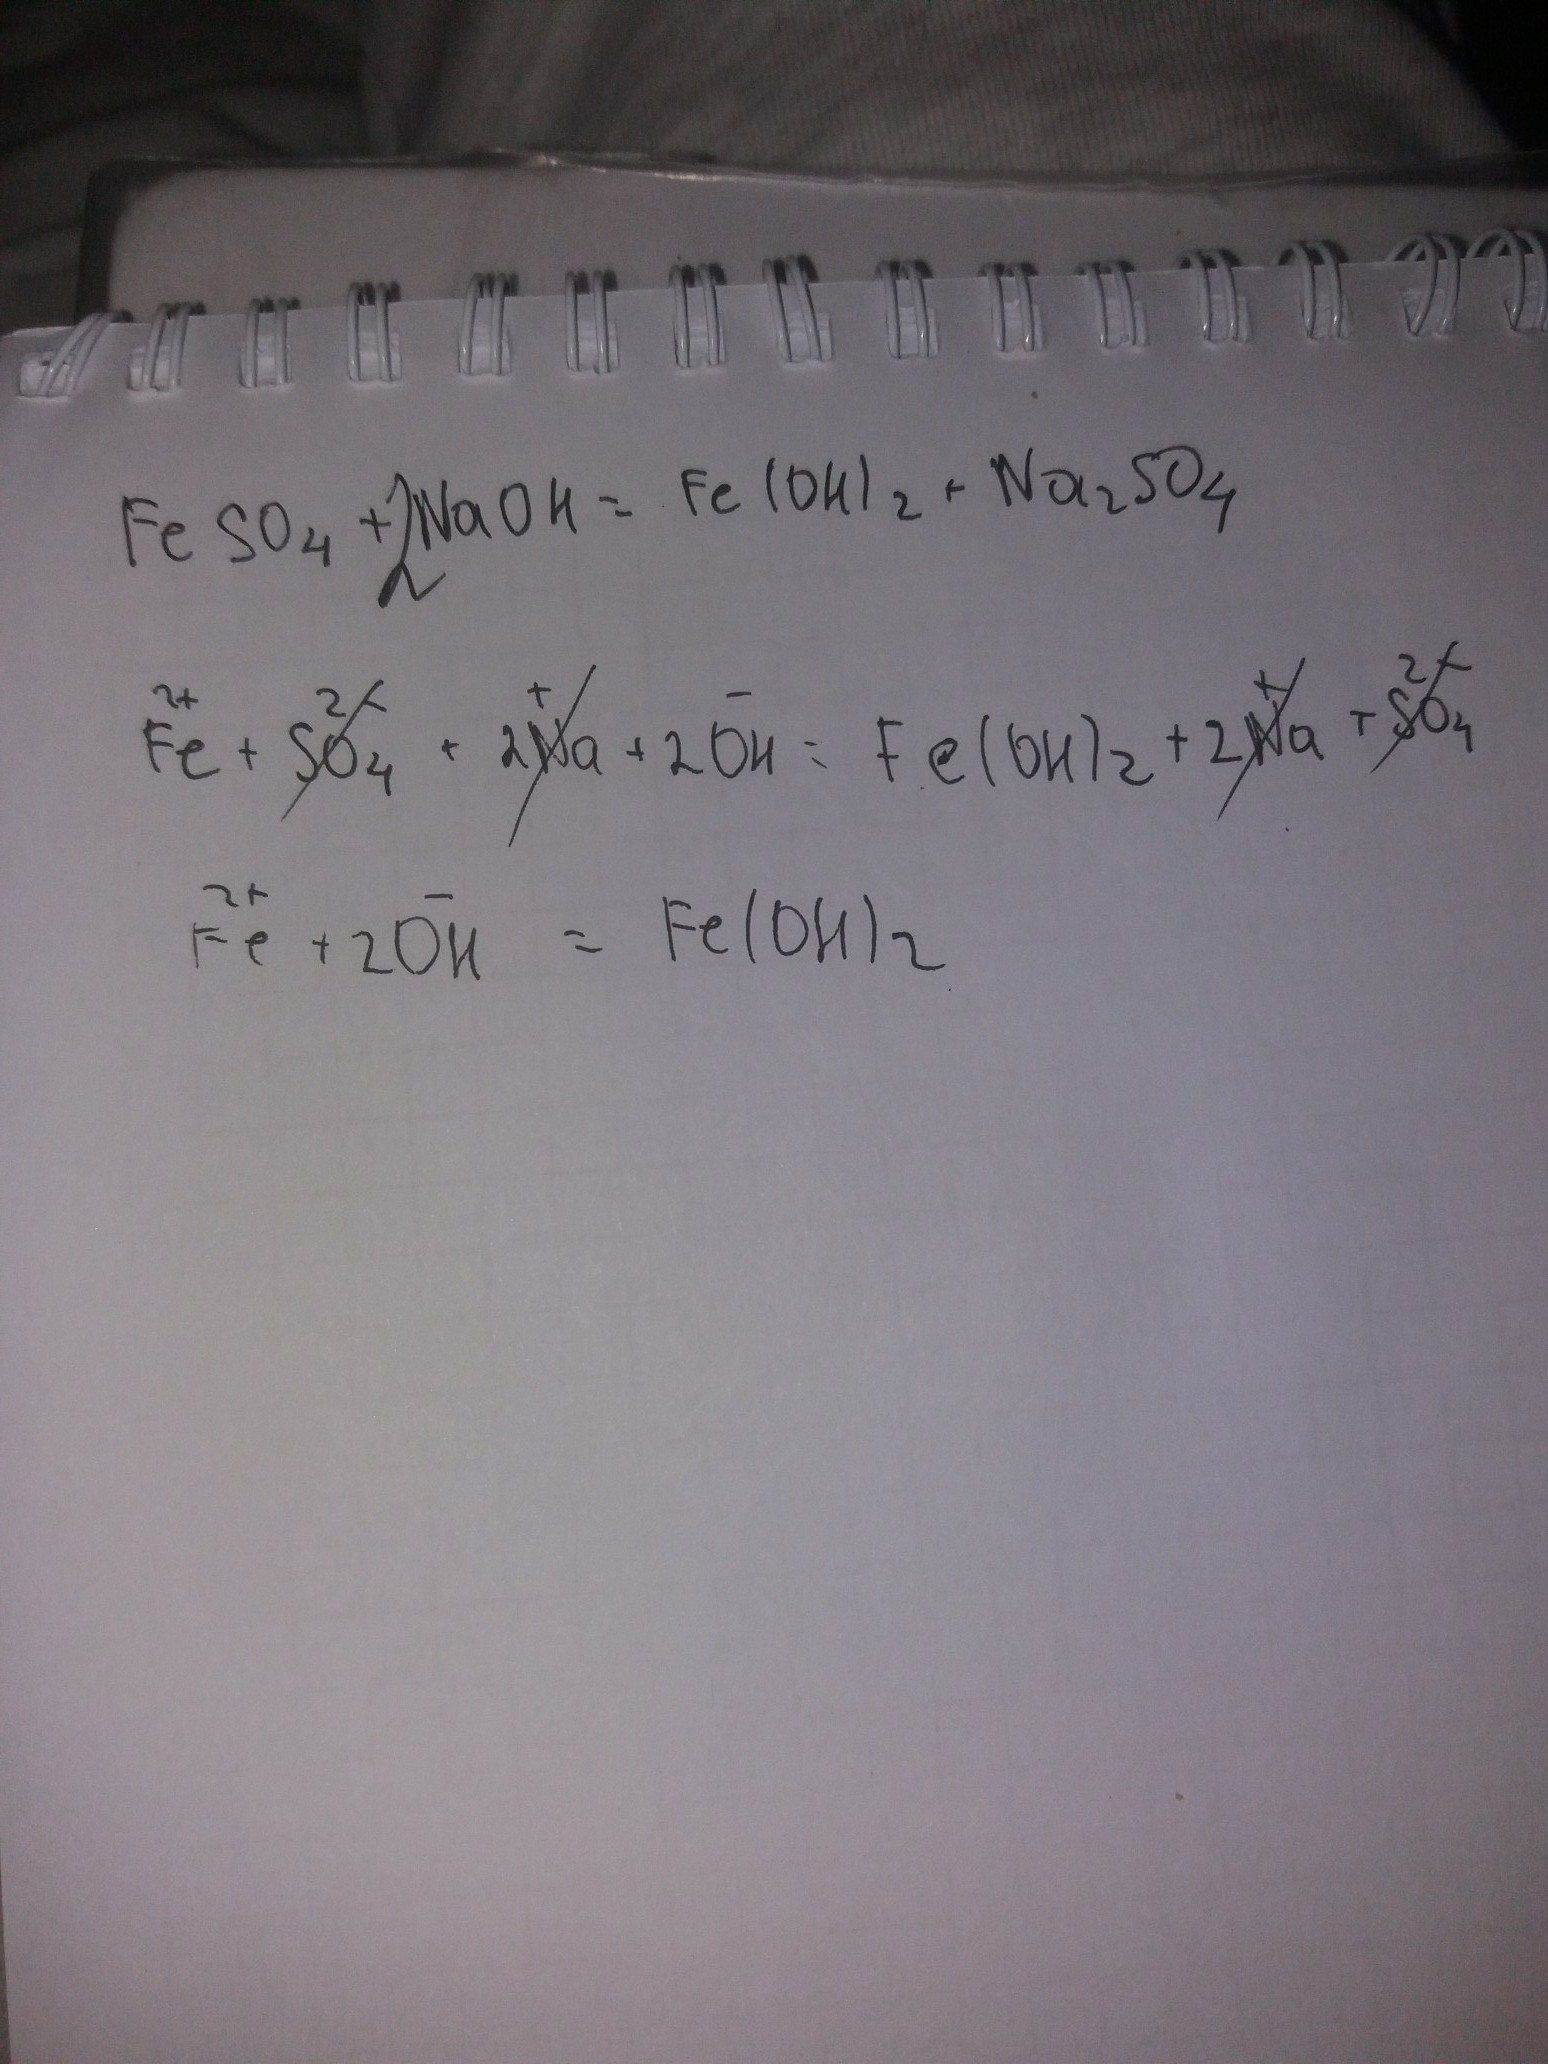 FeSO₄ + 2NaOH = Fe(OH)₂ + Na₂SO₄
Fe²⁺ + SO₄²⁻ + 2Na⁺ + 2OH⁻ = Fe(OH)₂ + 2Na⁺ + SO₄²⁻
Fe²⁺ + 2OH⁻ = Fe(OH)₂